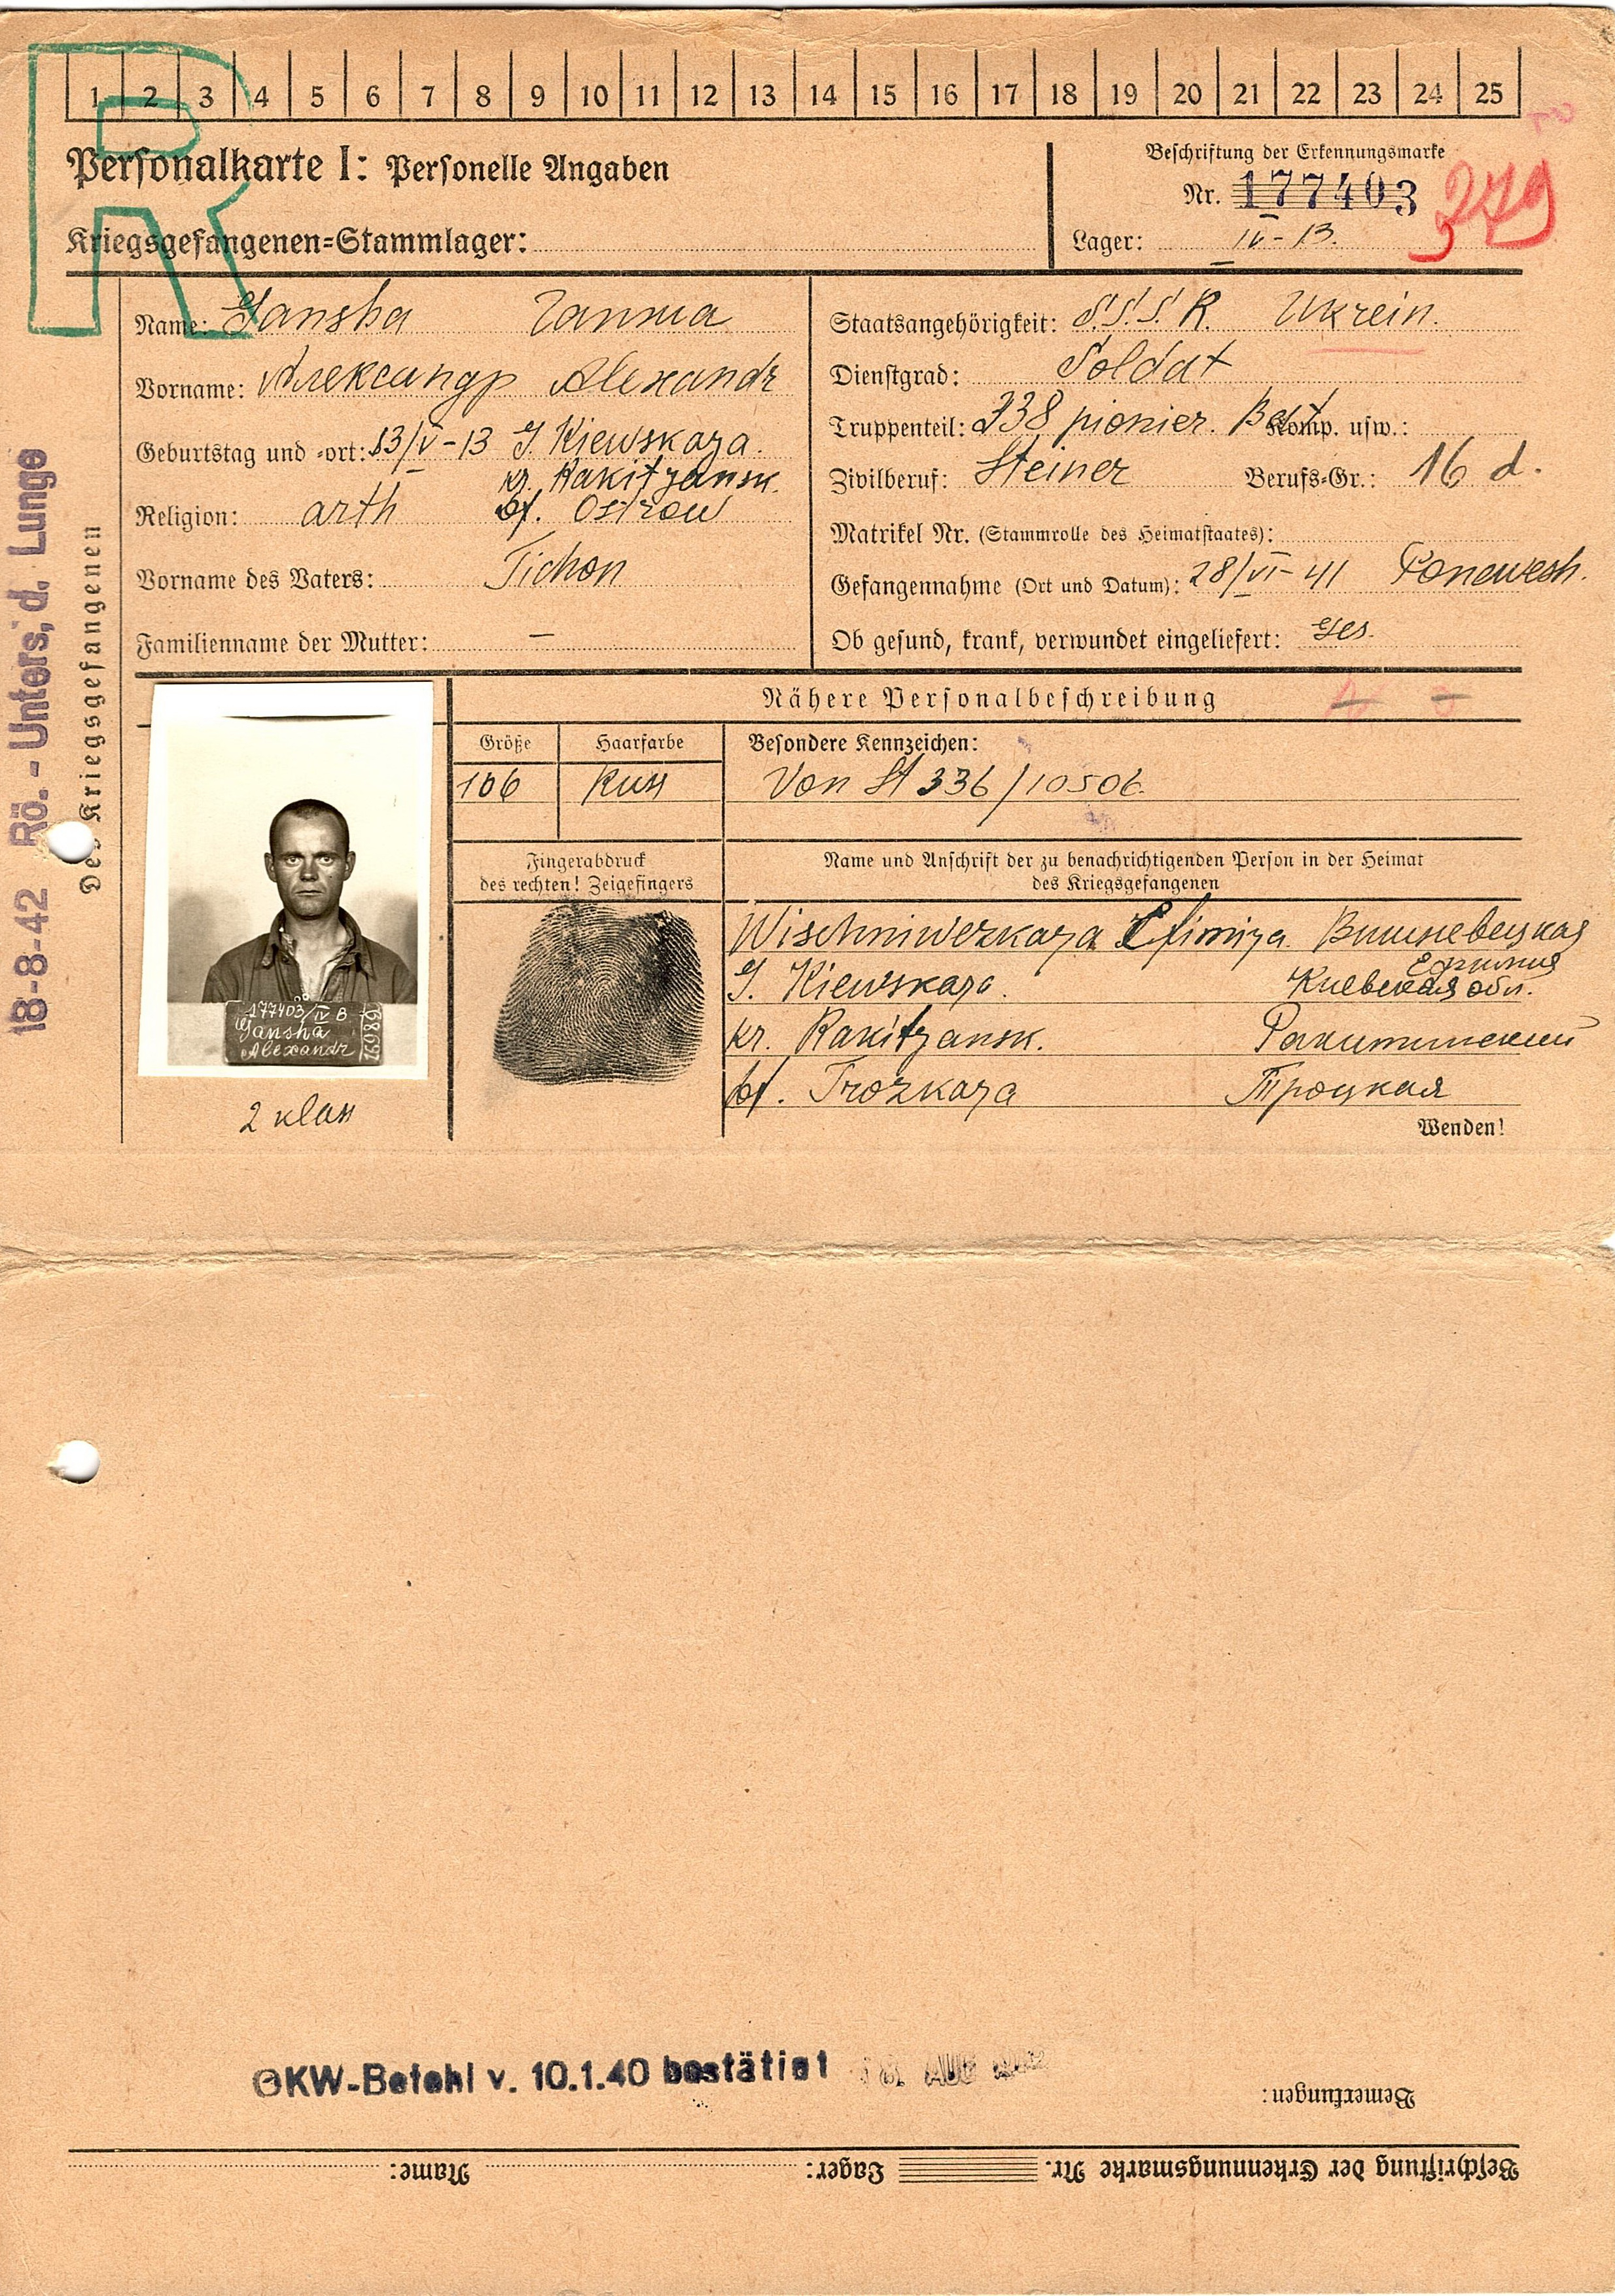 1 2 3 4 5 6 7 8 9 10 11 12 13 14 15 16 17 18 19 20 21 22 23 24 25
Personalkarte I: Personelle Angaben
Kriegsgefangenen=Stammlager:
Beschriftung der Erkennungsmarke
Nr. 177403
379
Lager: IV-B.
R
Name: Gansha Ганша
Vorname: Александр Alexandr
Geburtstag und =ort: 13/V-13 G. Kiewskaya.
kr. Rakityansk.
Religion: orth bf. Ostrow
Vorname des Vaters: Tichon
Familienname der Mutter: —
Staatsangehörigkeit: S.S.S.R. Ukrein.
Dienstgrad: Soldat
Truppenteil: 338 pionier. Bat. Komp. usw.:
Zivilberuf: Steiner Berufs=Gr.: 16 d.
Matrikel Nr. (Stammrolle des Heimatstaates):
Gefangennahme (Ort und Datum): 28/VI-41 Ponewesh.
Ob gesund, krank, verwundet eingeliefert: Ges.
18-8-42 Rö.-Unters. d. Lunge
Des Kriegsgefangenen
Nähere Personalbeschreibung
Größe Haarfarbe Besondere Kennzeichen:
166 Russ Von St 336/10506.
Fingerabdruck
des rechten! Zeigefingers
Name und Anschrift der zu benachrichtigenden Person in der Heimat
des Kriegsgefangenen
Wischniwezkaya Efimiya Вишневецкая
Ефимия
G. Kiewskaya. Киевская обл.
kr. Rakityansk. Ракитянский
bf. Trozkaya Троцкая
Wenden!
177403/IV B
Gansha
Alexandr
2 klass
OKW-Befehl v. 10.1.40 bestätigt 18. AUG 1942
Bemerkungen:
Beschriftung der Erkennungsmarke Nr. Lager: Name: